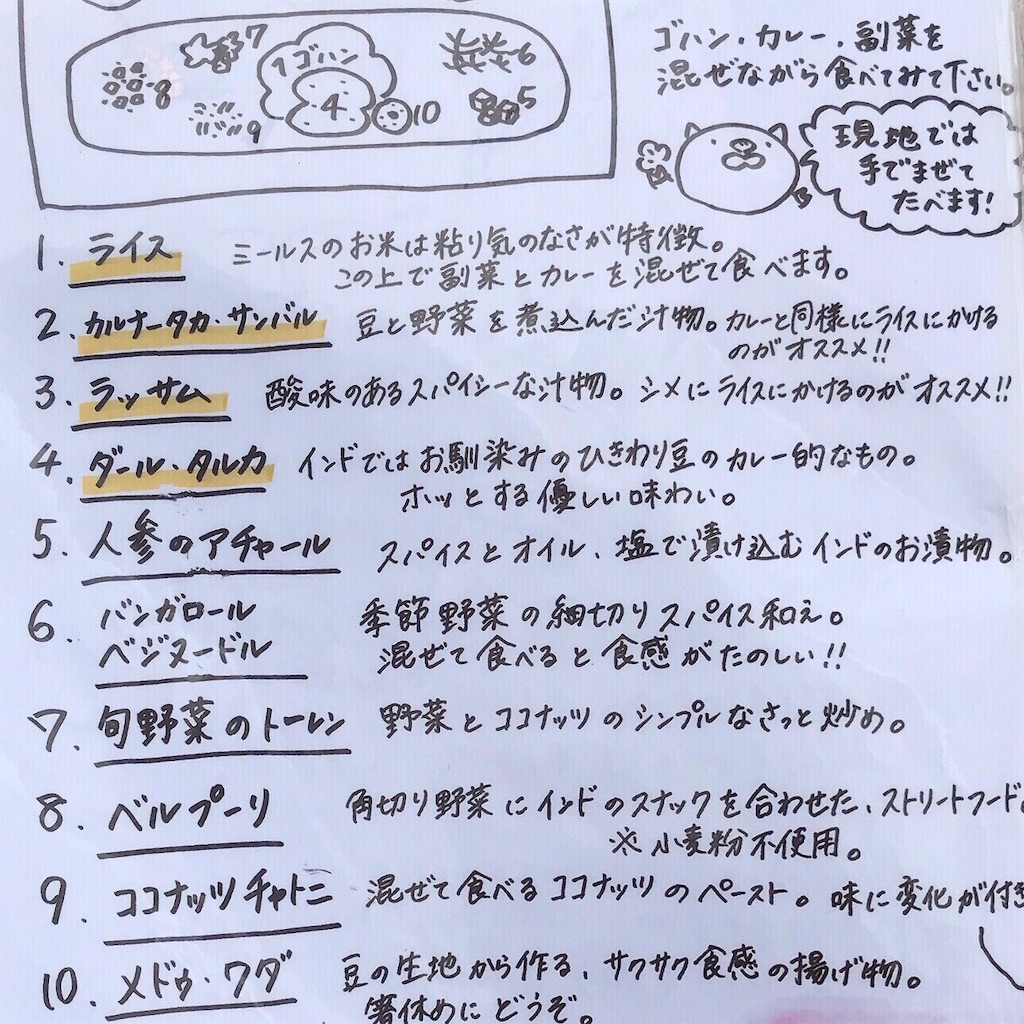 7
1 ゴハン
6
8
4
5
9
10
ゴハン・カレー・副菜を
混ぜながら食べてみて下さい。
現地では
手でまぜて
たべます!
1. ライス ミールスのお米は粘り気のなさが特徴。
この上で副菜とカレーを混ぜて食べます。
2. カルナータカ・サンバル 豆と野菜を煮込んだ汁物。カレーと同様にライスにかける
のがオススメ!!
3. ラッサム 酸味のあるスパイシーな汁物。シメにライスにかけるのがオススメ!!
4. ダール・タルカ インドではお馴染みのひきわり豆のカレー的なもの。
ホッとする優しい味わい。
5. 人参のアチャール スパイスとオイル、塩で漬け込むインドのお漬物。
6. バンガロール 季節野菜の細切りスパイス和え。
ベジヌードル 混ぜて食べると食感がたのしい!!
7. 旬野菜のトーレン 野菜とココナッツのシンプルなさっと炒め。
8. ベルプーリ 角切り野菜にインドのスナックを合わせた、ストリートフード
※小麦粉不使用。
9. ココナッツチャトニ 混ぜて食べるココナッツのペースト。味に変化が付き
10. メドゥ・ワダ 豆の生地から作る、サクサク食感の揚げ物。
箸休めにどうぞ。